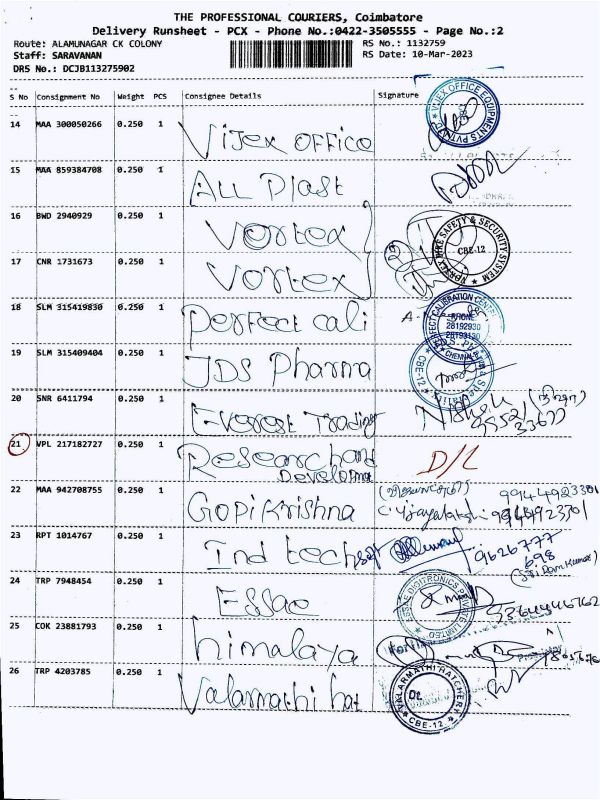 THE PROFESSIONAL COURIERS, Coimbatore
Delivery Runsheet - PCX - Phone No.:0422-3505555 - Page No.:2
Route: ALAMUNAGAR CK COLONY
RS No.: 1132759
Staff: SARAVANAN
RS Date: 10-Mar-2023
DRS No.: DCJB113275902
S No Consignment No Weight PCS Consignee Details Signature
14 MAA 300050266 0.250 1 Vijex office
15 MAA 859384708 0.250 1 ALL Plast
16 BWD 2940929 0.250 1 Vortex
17 CNR 1731673 0.250 1 Vortex
VORTEX FIRE SAFETY & SECURITY SYSTEM
CBE-12
18 SLM 315419830 0.250 1 Perfect cali
PERFECT CALIBRATION CENTER
PHONE
28192930
28193130
19 SLM 315409404 0.250 1 JDS Pharma
CBE-12
20 SNR 6411794 0.250 1 Everest Trading
21 VPL 217182727 0.250 1 Research and
Developme
D/L
22 MAA 942708755 0.250 1 Gopi Krishna
9944923301
C. Vijayalakshmi
23 RPT 1014767 0.250 1 Ind tech
9626777
698
(Sri Ram Kumar)
24 TRP 7948454 0.250 1 Essae
9364446762
25 COK 23881793 0.250 1 himalaya
26 TRP 4203785 0.250 1 Valarmathi hat
VALARMATHI HATCHERY
CBE-12